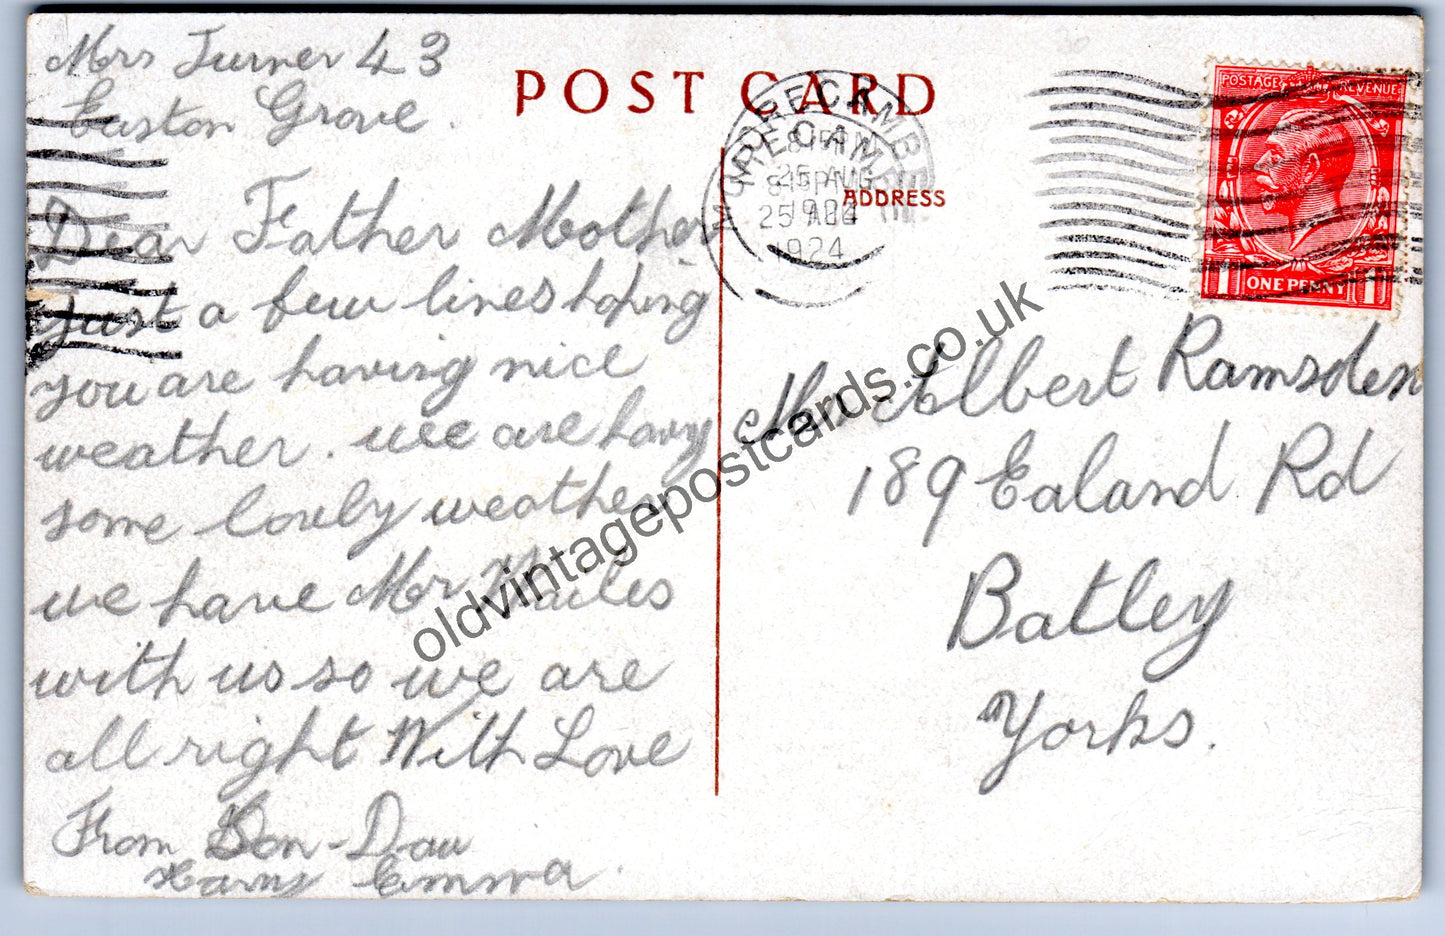 Mrs Turner 43
Euston Grove.
Dear Father Mother
Just a few lines hoping
you are having nice
weather. wee are having
some lovely weather
we have Mr Wailes
with us so we are
all right With Love
From Son - Dau
Harry Emma.
POST CARD
ADDRESS
MORECAMBE
25 AUG
1924
MORECAMBE
8 15 PM
25 AUG
1924
POSTAGE REVENUE
1 ONE PENNY 1
Mr Albert Ramsden
189 Ealand Rd
Batley
Yorks.
oldvintagepostcards.co.uk